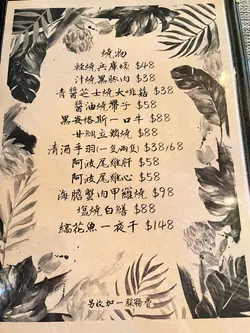 燒物
辣燒兵庫蠔 $48
汁燒黑豚肉 $38
青醬芝士燒大啡菇 $38
醬油燒帶子 $58
黑安格斯一口牛 $88
甘鯛立鱗燒 $88
清酒手羽(一隻/兩隻) $38/68
阿波尾雞肝 $58
阿波尾雞心 $58
海膽蟹肉甲羅燒 $98
塩燒白鱔 $88
縞花魚一夜干 $148
另收加一服務費